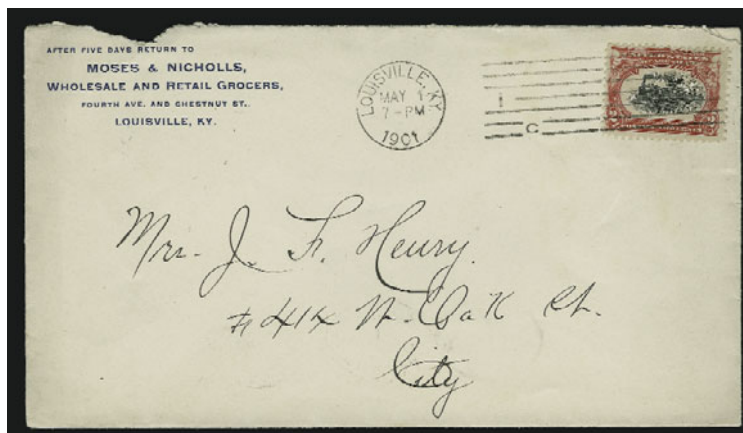 AFTER FIVE DAYS RETURN TO
MOSES & NICHOLLS,
WHOLESALE AND RETAIL GROCERS,
FOURTH AVE. AND CHESTNUT ST.,
LOUISVILLE, KY.
LOUISVILLE, KY
MAY 1
7-PM
1901
1
C
Mrs. J. F. Henry.
#414 W. Oak St.
City